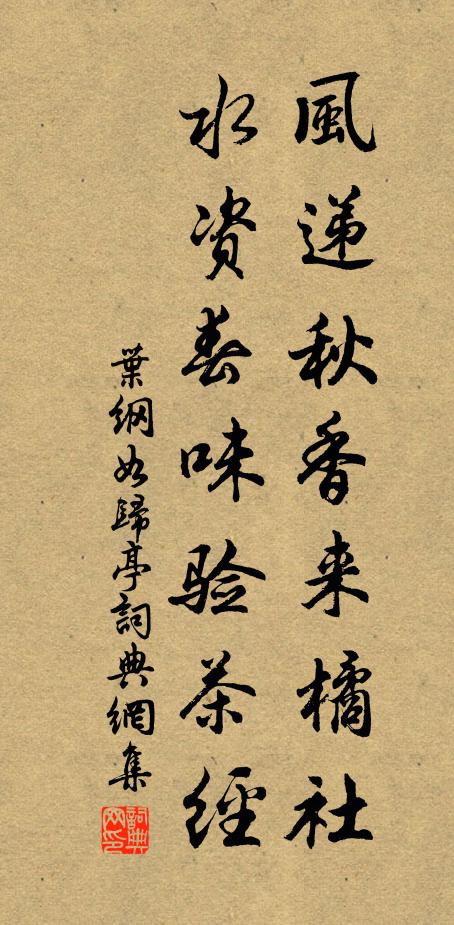 風递秋香来橘社
水资春味验茶經
葉綱如歸亭詞典網集
詞典网印